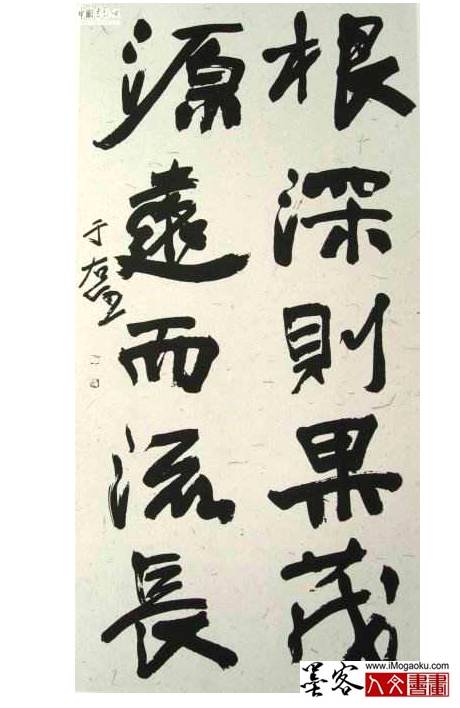 根深則果茂
源遠而流長
于右任
墨客
www.iMogaoku.com
人文書畫